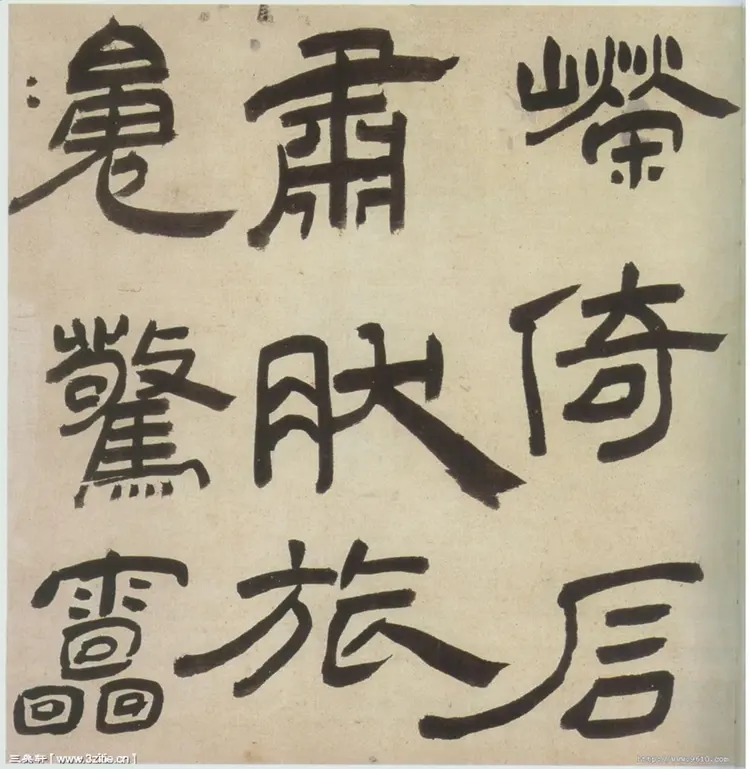 嶸倚
肅肰旅
驚靁
[www.3zitie.cn]
http://www.9610.com